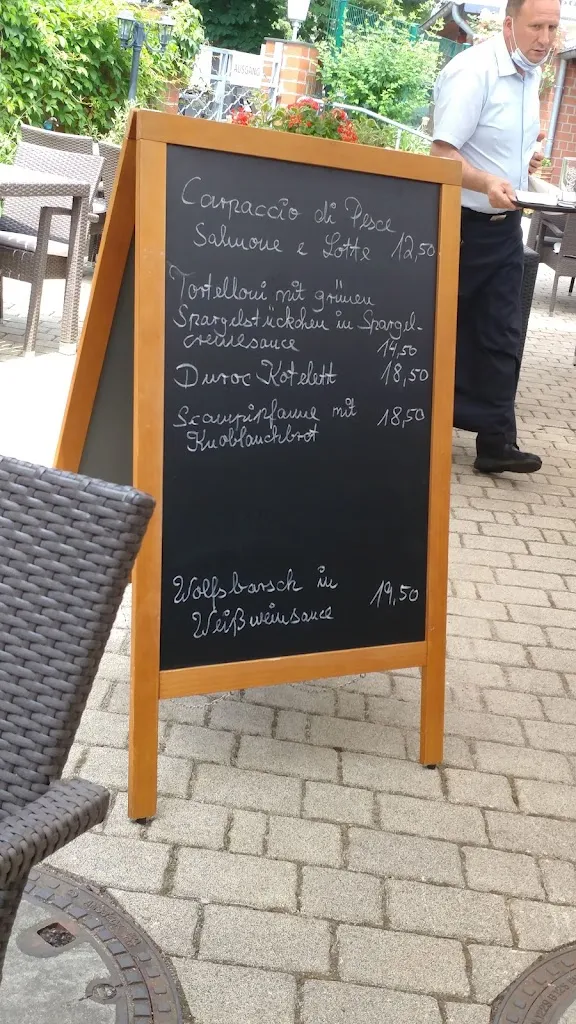 AUSGANG
Carpaccio di Pesce
Salmone e Lotte 12,50
Tortelloni mit grünen
Spargelstückchen in Spargel-
cremesauce 14,50
Duroc Kotelett 18,50
Scampipfanne mit 18,50
Knoblauchbrot
Wolfsbarsch in 19,50
Weißweinsauce